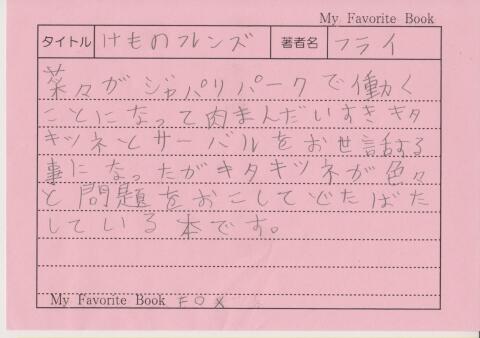 My Favorite Book
タイトル けものフレンズ 著者名 フライ
菜々がジャパリパークで働く
ことになって肉まんだいすきキタ
キツネとサーバルをお世話する
事になったがキタキツネが色々
と問題をおこしてどたばた
している本です。
My Favorite Book FOX